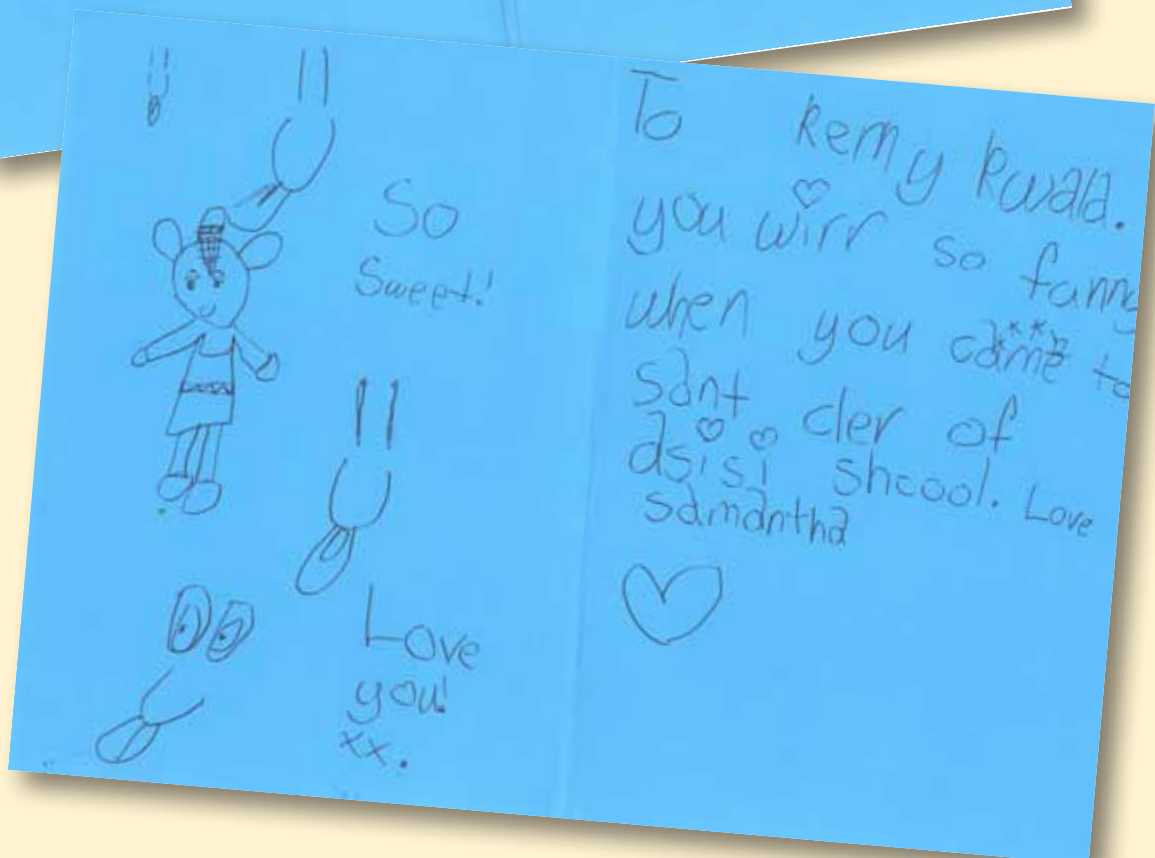 So
Sweet!
Love
you!
xx.
To Remy Rwala.
you wirr so fanny
when you came to
sant cler of
dsisi shcool. Love
samantha